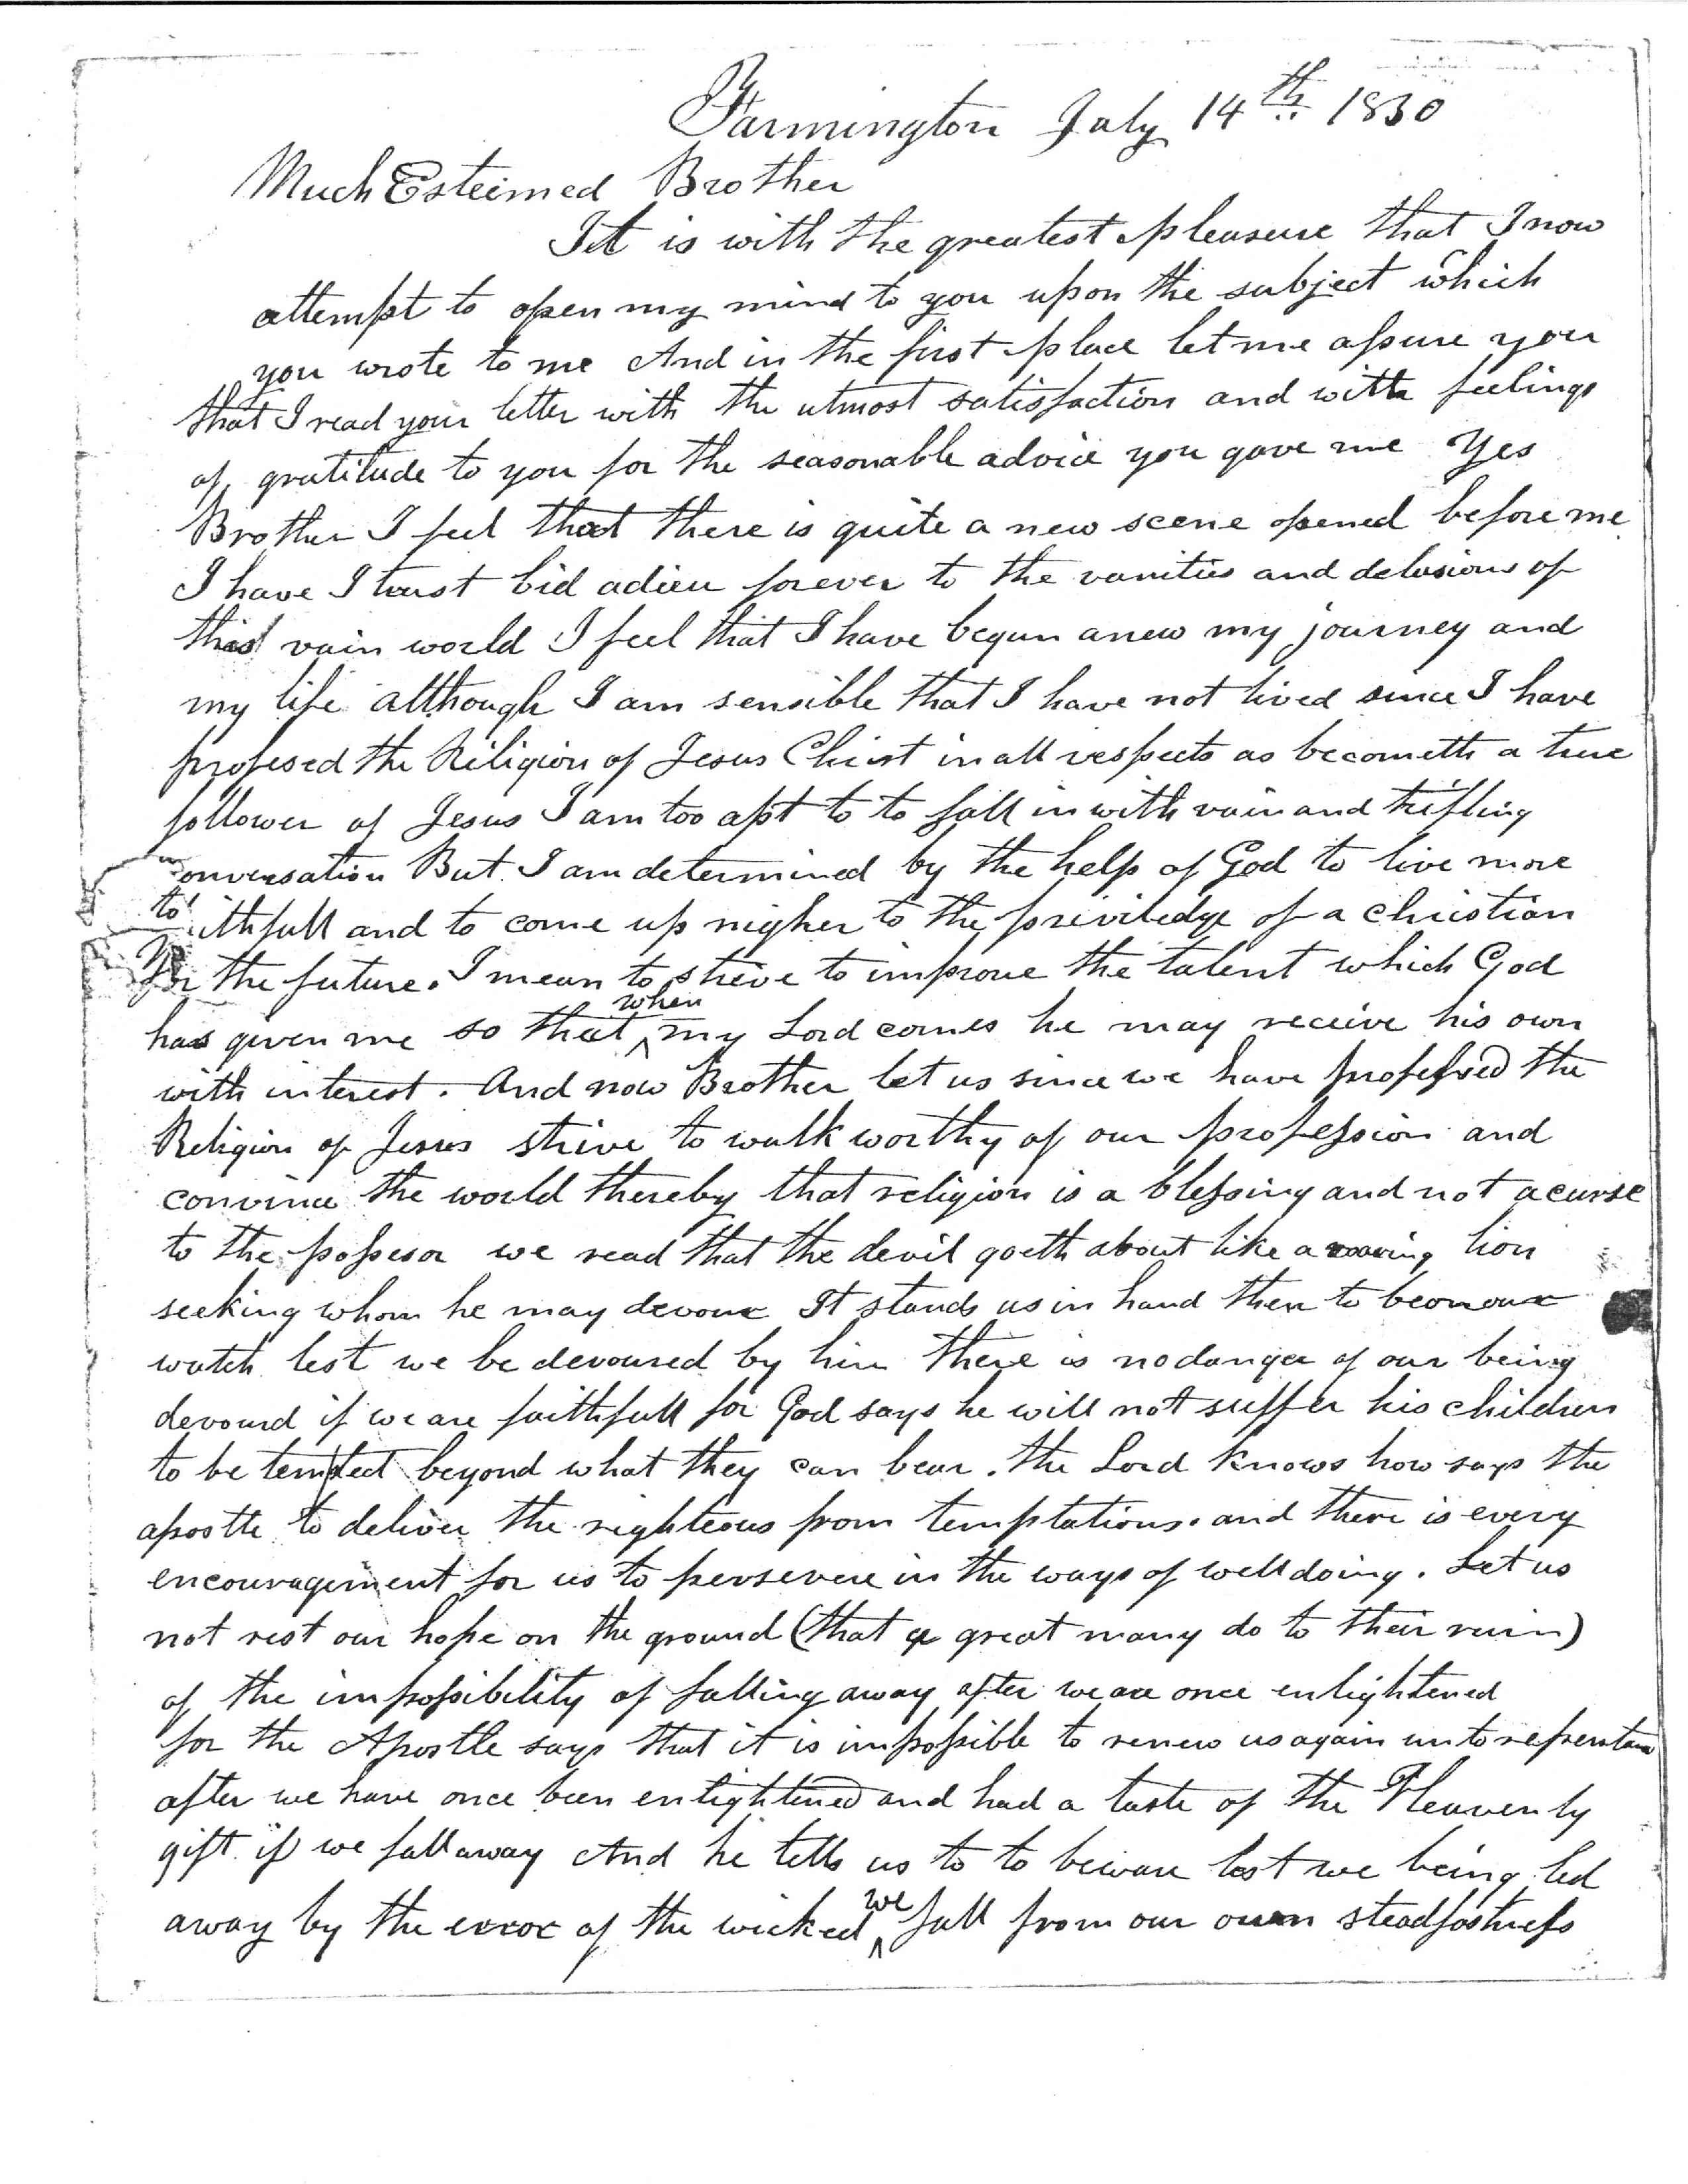 Farmington July 14th 1830
Much Esteimed Brother
It is with the greatest pleasure that I now
attempt to open my mind to you upon the subject which
you wrote to me And in the first place let me assure you
that I read your letter with the utmost satisfaction and with feelings
of gratitude to you for the seasonable advice you gave me Yes
Brother I feel that there is quite a new scene opened before me
I have I trust bid adieu forever to the vanities and delusions of
this vain world I feel that I have begun anew my journey and
my life although I am sensible that I have not lived since I have
profesed the Religion of Jesus Christ in all respects as becometh a true
follower of Jesus I am too apt to to fall in with vain and trifling
onversation But I am determined by the help of God to live more
to ithfull and to come up nigher to the priviledge of a christian
for the future. I mean to strive to improve the talent which God
has given me so that when my Lord comes he may receive his own
with interest. And now Brother let us since we have professed the
Religion of Jesus strive to walk worthy of our profession and
convince the world thereby that religion is a blessing and not a curse
to the possesor we read that the devil goeth about like a roaring lion
seeking whom he may devour It stands us in hand then to be on our
watch lest we be devoured by him there is no danger of our being
devourd if we are faithfull for God says he will not suffer his children
to be tempted beyond what they can bear. the Lord knows how says the
apostle to deliver the righteous from temptations. and there is every
encouragement for us to persevere in the ways of well doing. Let us
not rest our hope on the ground (that a great many do to their ruin)
of the impossibility of falling away after we are once enlightened
for the Apostle says that it is impossible to renew us again unto repentance
after we have once been enlightened and had a taste of the Heavenly
gift if we fall away And he tells us to to beware lest we being led
away by the error of the wicked we fall from our own steadfastness